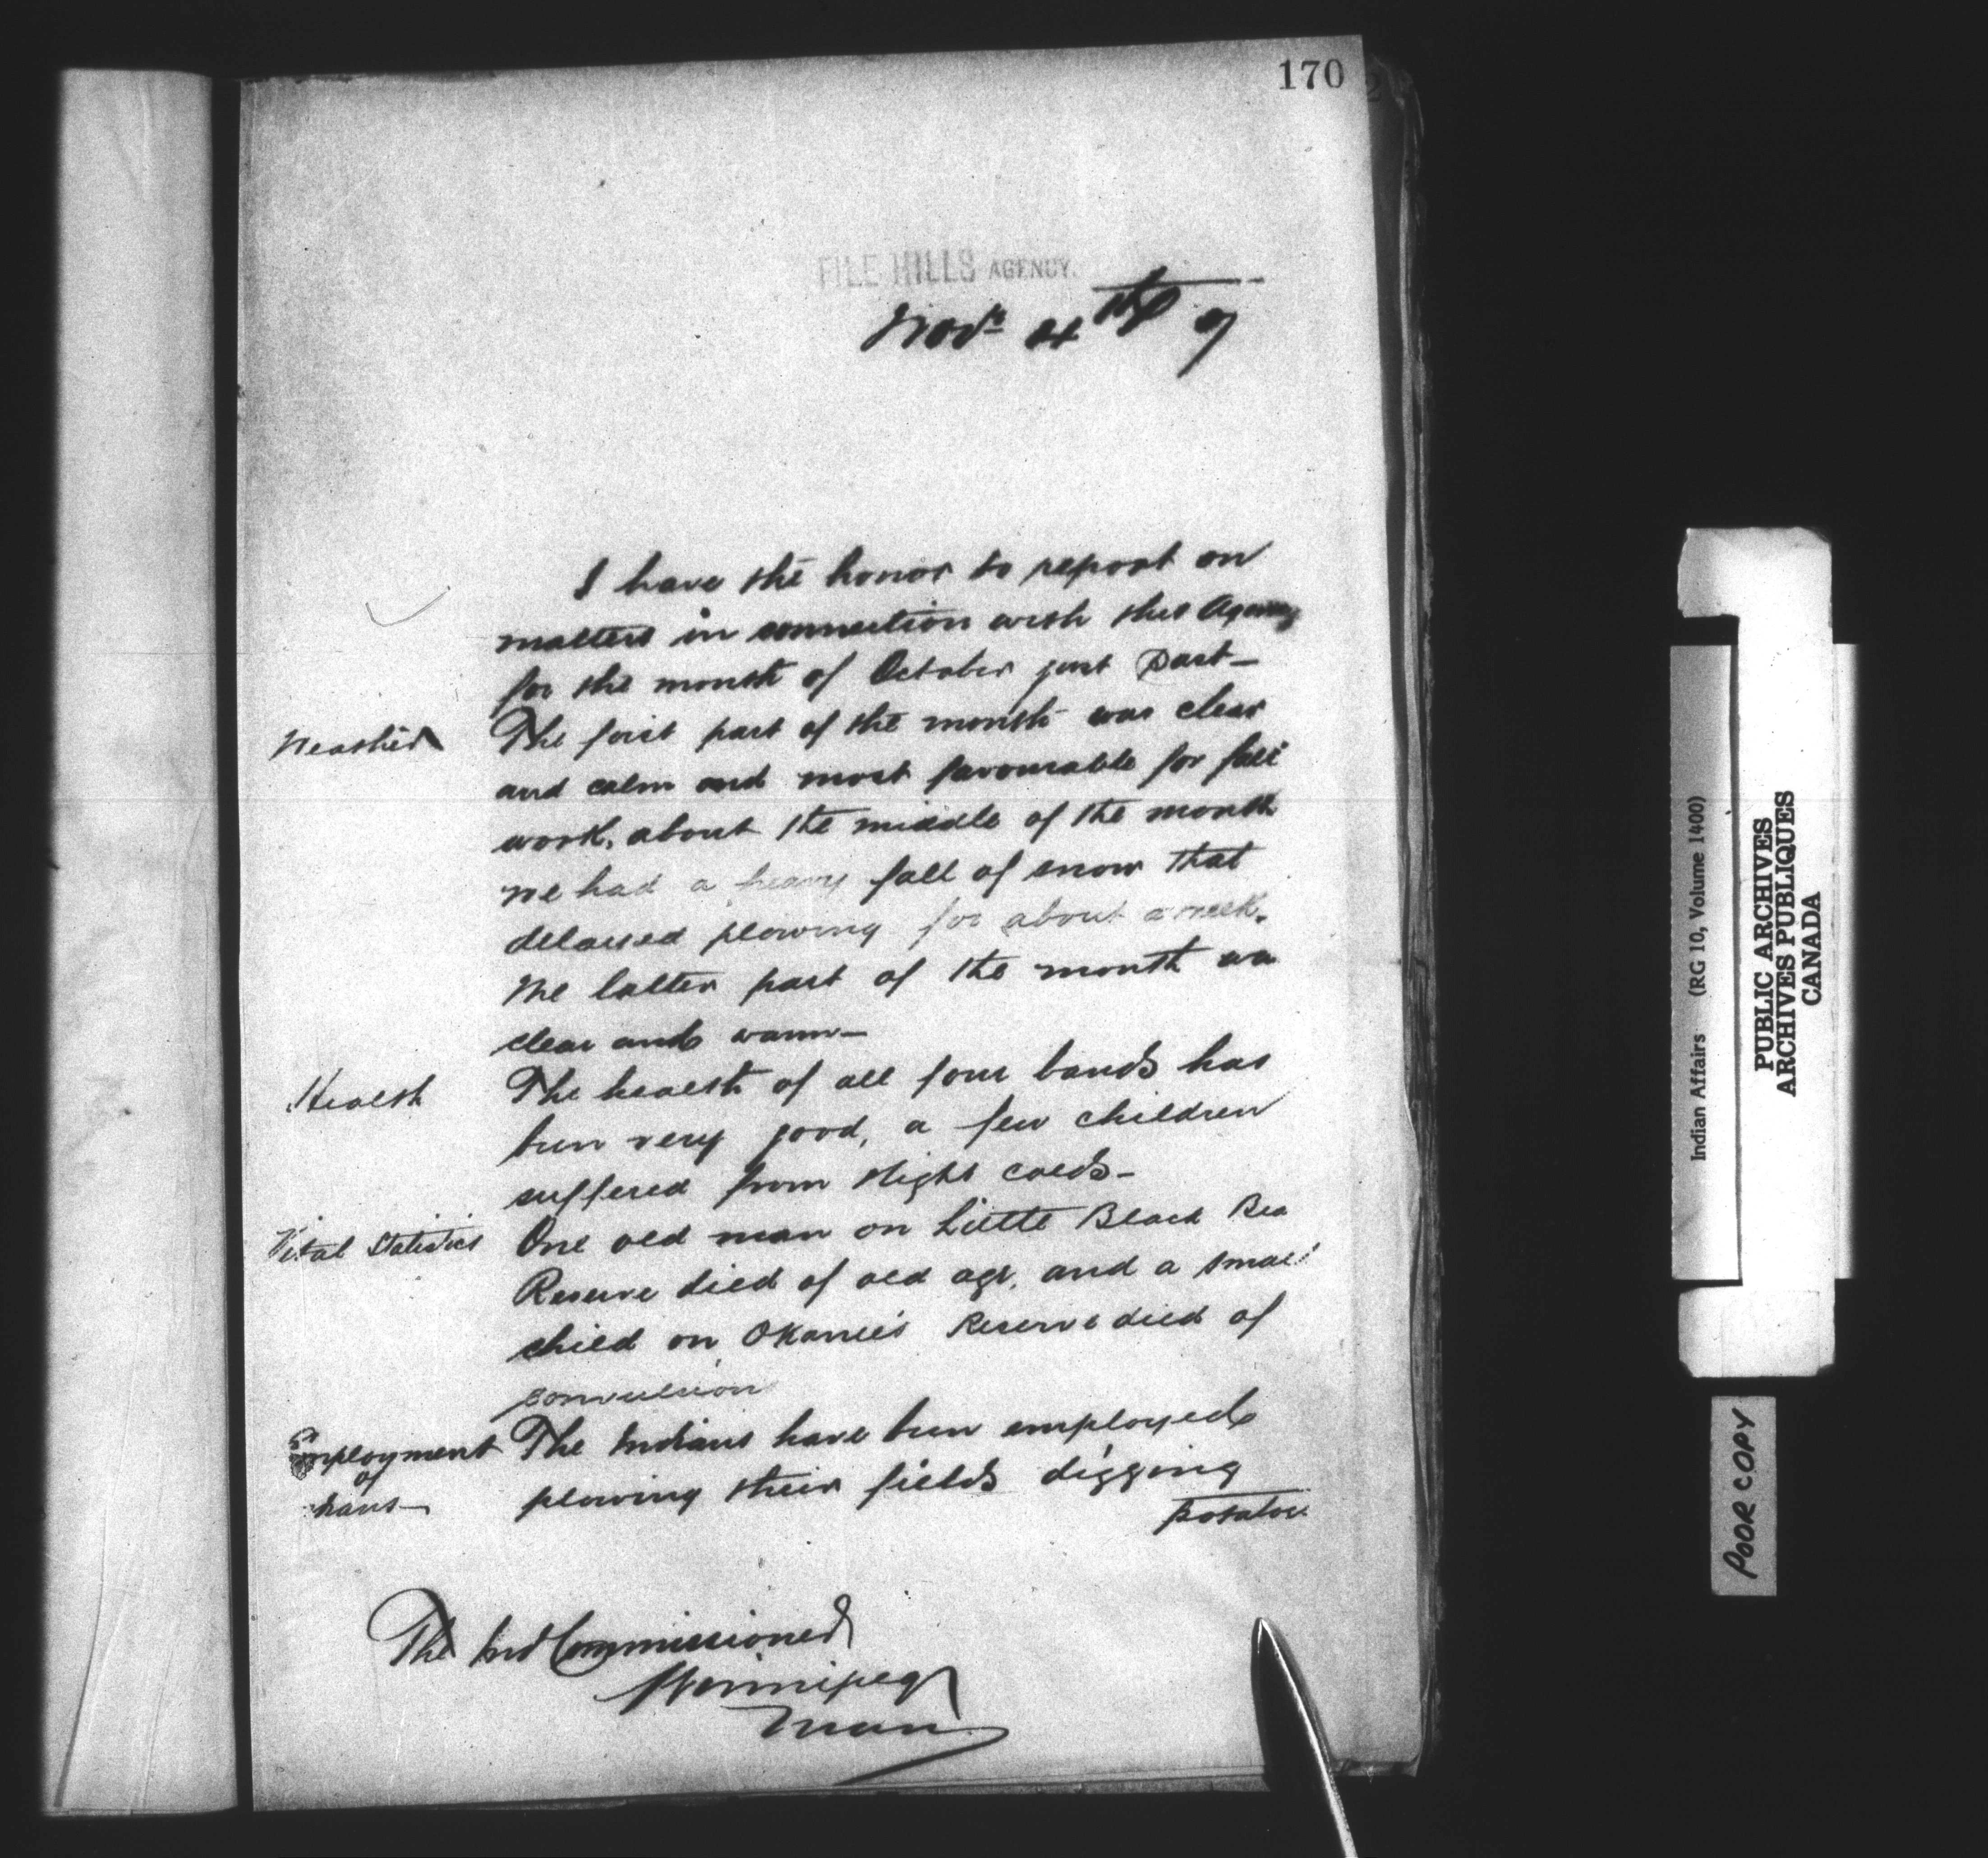 170
FILE HILLS AGENCY.
Nov. 4th 7
I have the honor to report on
matters in connection with this Agency
for the month of October just past—
Weather The first part of the month was clear
and calm and most favourable for fall
work, about the middle of the month
we had a heavy fall of snow that
delayed plowing for about a week.
The latter part of the month wa
clear and warm—
Health The health of all four bands has
been very good, a few children
suffered from slight colds—
Vital Statistics One old man on Little Black Bea
Reserve died of old age, and a small
child on Okanee's Reserve died of
convulsion
Employment The Indians have been employed
of
plowing their fields digging
potatoe
The Ind Commissioner
Winnipeg
Man
Indian Affairs (RG 10, Volume 1400)
PUBLIC ARCHIVES
ARCHIVES PUBLIQUES
CANADA
POOR COPY